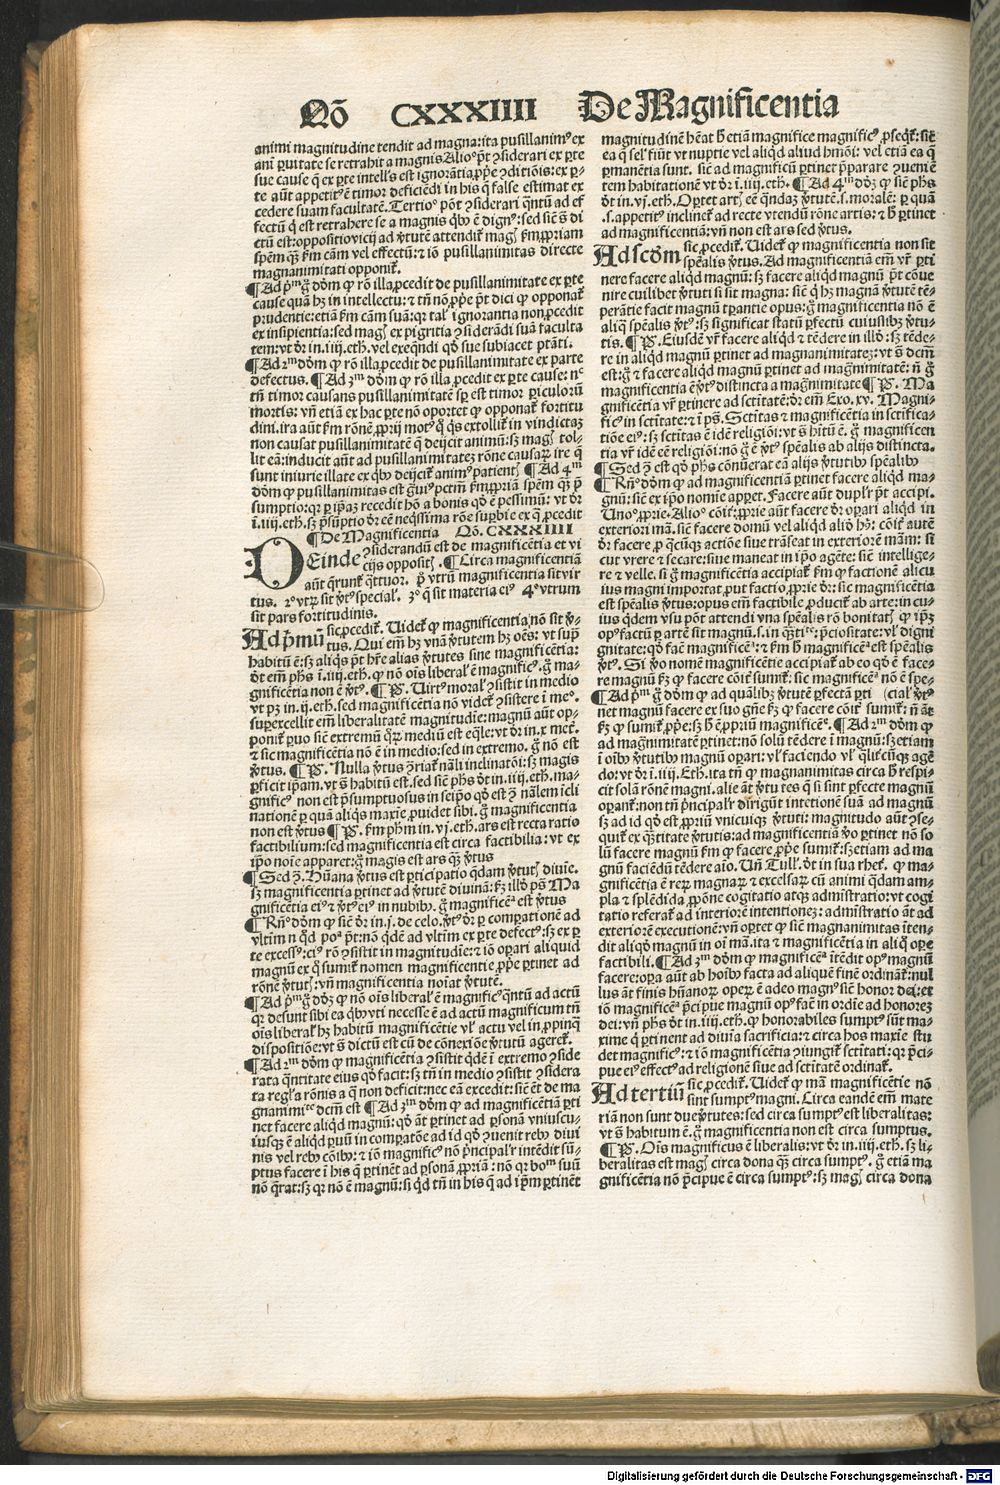 Qõ CXXXIIII De Magnificentia
animi magnitudine tendit ad magna: ita pusillanimꝰ ex
animi ꝑuitate se retrahit a magnis Alio pñt ꝯsiderari ex ꝑte
sue cause q̃ ex ꝑte intellꝰ est ignorãtia ꝓpꝛie ꝯditiõis: ex ꝑ-
te aũt appetitꝰ ẽ timor deficiẽdi in his q̃ false estimat ex
cedere suam facultatẽ. Tertio põt ꝯsiderari quãtũ ad ef
fectũ q̃ est retrahere se a magnis qbꝰ ẽ dignꝰ: sed sicut s̃ di
ctũ est: oppositio vicij ad ꝟtutẽ attendit magis ẜm ꝓpriam
spẽm q̃ ẜm cãm vel effectũ: ⁊ iõ pusillanimitas directe
magnanimitati opponit.
¶ Ad pꝛimũ g̃ dõm ꝙ rõ illa ꝓcedit de pusillanimitate ex ꝑte
cause quã hꝫ in intellectu: ⁊ tñ nõ ꝓpꝛie pñt dici ꝙ opponat
pꝛudentie: etiã ẜm cãm suã: qꝛ talis ignorantia non ꝓcedit
ex insipientia: sed magis ex pigritia ꝯsiderãdi suã faculta
tem: vt dꝛ in .iiij. eth. vel exequẽdi qõ sue subiacet ptãti.
¶ Ad 2m dõm ꝙ rõ illa ꝓcedit de pusillanimitate ex parte
defectus. ¶ Ad 3m dõm ꝙ rõ illa ꝓcedit ex ꝑte cause: nec
tñ timor causans pusillanimitatẽ sp̃ est timor ꝑiculoꝛũ
mortis: vñ etiã ex hac ꝑte nõ oportet ꝙ opponat fortitu
dini. ira aũt ẜm rõnẽ ꝓpꝛij motꝰ q̃ qs extollit in vindictaꝫ
non causat pusillanimitatẽ q̃ deijcit animũ: sꝫ magis tol-
lit eã: inducit aũt ad pusillanimitatez rõne causaꝝ ire q̃
sunt iniurie illate ex qbꝰ deijcit animꝰ patientis ¶ Ad 4m
dõm ꝙ pusillanimitas est grauiꝰ pctm̃ ẜm ꝓpꝛiã spẽm q̃ pꝛe
sumptio: qꝛ ꝑ ipsaz recedit hõ a bonis qõ ẽ pessimũ: vt dꝛ
i .iiij. eth. sꝫ pꝛesũptio dꝛ eẽ neqssima rõe supbie ex q̃ ꝓcedit
¶ De Magnificentia Qõ. CXXXIIII
DEinde ꝯsiderandũ est de magnificẽtia et vi
cijs oppositis. ¶ Circa magnificentiã
aũt q̃runt q̃tuor. pꝛimo vtrũ magnificentia sit vir
tus. 2o vtꝝ sit ꝟtus specialis. 3o q̃ sit materia eiꝰ 4o vtrum
sit pars fortitudinis.
Ad pꝛimũ sic ꝓcedit. Videt ꝙ magnificentia nõ sit ꝟ-
tus. Qui em̃ hꝫ vnã ꝟtutem hꝫ oẽs: vt supꝛa
habitũ ẽ: sꝫ aliqs pñt hꝛe alias ꝟtutes sine magnificẽtia:
dt em̃ phs i .iiij. eth. ꝙ nõ ois liberalis ẽ magnificꝰ. g̃ ma-
gnificẽtia non ẽ ꝟtus. ¶ P̃. Virtus moralis ꝯsistit in medio
vt pꝫ in .ij. eth. sed magnificẽtia nõ videt ꝯsistere i medio.
superexcellit em̃ liberalitatẽ magnitudie: magnũ aũt op-
ponit paruo sic̃ extremũ quoꝝ mediũ est eq̃le: vt dꝛ in .x. metꝰ.
⁊ sic magnificẽtia nõ ẽ in medio: sed in extremo. g̃ nõ est
ꝟtus. ¶ P̃. Nulla ꝟtus ꝯtriat nãli inclinatõi: sꝫ magis
ꝑficit ipsam. vt s̃ habitũ est. sed sic̃ phs dt in .iiij. eth. ma-
gnificꝰ non est pꝛesumptuosus in seipso qõ est ꝯ nãlem icli
nationẽ ꝑ quã aliqs maxie ꝓuidet sibi. g̃ magnificentia
non est ꝟtus ¶ P̃. ẜm phm in .vj. eth. ars est recta ratio
factibilium: sed magnificentia est circa factibilia: vt ex
ipso noie apparet: g̃ magis est ars q̃ꝫ ꝟtus
¶ Sed ꝯ. Hũana ꝟtus est ꝑticipatio qdam ꝟtutis diuie.
sꝫ magnificentia ꝑtinet ad ꝟtutẽ diuinã: ẜm illd ps̃. Ma
gnificẽtia eiꝰ ⁊ ꝟtus eiꝰ in nubibꝰ. g̃ magnificẽa est ꝟtus
¶ Rñ. dõm ꝙ sic̃ dꝛ in .j. de celo. ꝟtus dꝛ ꝑ compationẽ ad
vltim̃ in qd põa pñt: nõ qdẽ ad vltim̃ ex ꝑte defectꝰ: sꝫ ex ꝑ
te excessꝰ: eiꝰ rõ ꝯsistit in magnitudie: ⁊ iõ oꝑari aliquid
magnũ ex q̃ sumit nomen magnificentie ꝓpꝛie ꝑtinet ad
rõnẽ ꝟtutis: vñ magnificentia noiat ꝟtutẽ.
¶ Ad pꝛimũ g̃ dõꝫ ꝙ nõ ois liberalis ẽ magnificꝰ quãtũ ad actũ
qꝛ desunt sibi ea qbꝰ vti necesse ẽ ad actũ magnificum tñ
ois liberalis hꝫ habitũ magnificẽtie vel actu vel in ꝓpinq̃
dispositiõe: vt s̃ dictũ est cũ de cõnexiõe ꝟtutũ ageret.
¶ Ad 2m dõm ꝙ magnificentia ꝯsistit qdẽ ĩ extremo ꝯside
rata q̃ntitate eius qõ facit: sꝫ tñ in medio ꝯsistit ꝯsidera
rata regla rõnis a q̃ non deficit: nec eã excedit: sic̃ ẽt de ma
gnanimite dcm̃ est ¶ Ad 3m dõm ꝙ ad magnificẽtiã ꝑti
net facere aliquid magnũ: qõ aũt ꝑtinet ad ꝑsonã vniuscu-
iusqꝫ ẽ aliqd paruũ in compatõe ad id qõ ꝯuenit rebꝰ diui
nis vel rebꝰ cõibꝰ: ⁊ iõ magnificꝰ nõ pꝛincipalꝛ intẽdit sũ-
ptus facere i his q̃ ꝑtinẽt ad ꝑsonã ꝓpꝛiã: nõ qꝛ bonũ suũ
nõ q̃rat: sꝫ qꝛ nõ ẽ magnũ: si qd tñ in his q̃ ad ipsum ꝑtinẽt
magnitudinẽ heat h̃ etiã magnifice magnificꝰ ꝓseqt: sic̃
ea q̃ semel fiũt vt nuptie vel aliqd aliud hmõi: vel etiã ea q̃
ꝑmanẽtia sunt. sic̃ ad magnificũ ꝑtinet pꝛeparare ꝯueniẽ
tem habitationẽ vt dꝛ i .iiij. eth. ¶ Ad 4m dõꝫ ꝙ sic̃ phs
dt in .vj. eth. Oportet artis eẽ qndaz ꝟtutẽ .s. moralẽ: ꝑ quã
.s. appetitꝰ inclinet ad recte vtendũ rõne artis: ⁊ h̃ ꝑtinet
ad magnificentiã: vñ non est ars sed ꝟtus.
Ad scðm sic ꝓcedit. Videt ꝙ magnificentia non sit
spẽalis ꝟtus. Ad magnificentiã em̃ vr̃ ꝑti
nere facere aliqd magnũ: sꝫ facere aliqd magnũ pñt cõue
nire cuilibet ꝟtuti si sit magna: sic̃ q̃ hꝫ magnã ꝟtutẽ tẽ-
perãtie facit magnũ tꝑantie opus: g̃ magnificentia nõ ẽ
aliq̃ spẽalis ꝟtus: sꝫ significat statũ ꝑfectũ cuiuslibꝫ ꝟtu-
tis. ¶ P̃. Eiusdẽ vr̃ facere aliqd ⁊ tẽdere in illd: sꝫ tẽde-
re in aliqd magnũ ꝑtinet ad magnanimitatez: vt s̃ dcm̃
est: g̃ ⁊ facere aliqd magnũ ꝑtinet ad magnimitatẽ: nõ g̃
magnificentia ẽ ꝟtus distincta a magnimitate ¶ P̃. Ma
gnificẽtia vr̃ ꝑtinere ad sctitatẽ: dꝛ em̃ Exo. xv. Magni-
ficꝰ in sctitate: ⁊ i ps̃. Sctitas ⁊ magnificẽtia in sctifica-
tiõe eiꝰ: sꝫ sctitas ẽ idẽ religiõi: vt s̃ hitũ ẽ. g̃ magnificen
tia vr̃ idẽ eẽ religiõi: nõ g̃ ẽ ꝟtus spẽalis ab alijs distincta.
¶ Sed ꝯ est qõ phs cõnũerat eã alijs ꝟtutibꝰ spẽalibꝰ
¶ Rñ. dõm ꝙ ad magnificentiã ꝑtinet facere aliqd ma-
gnũ: sic̃ ex ipso nomie appret. Facere aũt duplr pñt accipi.
Uno ꝓpꝛie. Alio cõit: ꝓpꝛie aũt facere dꝛ oꝑari aliqd in
exteriori mã. sic̃ facere domũ vel aliqd aliud hꝰ: cõit autẽ
dꝛ facere ꝓ q̃cũqꝫ actiõe siue trãseat in exteriorẽ mãm: si
cut vrere ⁊ secare: siue maneat in ipso agẽte: sic̃ intellige-
re ⁊ velle. si g̃ magnificẽtia accipiat ẜm ꝙ factionẽ alicu
ius magni importat, put factio ꝓpꝛie dꝛ: sic magnificẽtia
est spẽalis ꝟtus: opus em̃ factibile ꝓducit ab arte: in cu-
ius qdem vsu põt attendi vna spẽalis rõ bonitatis q̃ ipꝫ
opus factũ ꝑ artẽ sit magnũ .s. in q̃ntitate: pꝛeciositate: vl digni
gnitate: qõ faẽ magnificẽa: ⁊ ẜm h̃ magnificẽa est spẽalis
ꝟtus. Si vo nomẽ magnificẽtie accipiat ab eo qõ ẽ face-
re magnũ ẜm ꝙ facere cõit sumit: sic magnificẽa nõ ẽ spe-
¶ Ad pꝛimũ g̃ dõm ꝙ ad quãlibꝫ ꝟtutẽ ꝑfectã ꝑti (cialis ꝟtus
net magnũ facere ex suo gñe ẜm ꝙ facere cõit sumit: nõ aũt
ẜm ꝙ sumit ꝓpꝛie: sꝫ h̃ ẽ ꝓpꝛiũ magnificẽe. ¶ Ad 2m dõm ꝙ
ad magnimitatẽ ꝑtinet: nõ solũ tẽdere ĩ magnũ: sꝫ etiam
ĩ oibꝰ ꝟtutibꝰ magnũ oꝑari: vl faciendo vl qlitcũqꝫ agẽ
do: vt dꝛ i .iiij. Eth. ita tñ ꝙ magnanimitas circa h̃ respi-
cit solã rõnẽ magni. alie aũt ꝟtutes q̃ si sint ꝑfecte magnũ
oꝑant: non tñ pꝛincipalr dirigũt intetionẽ suã ad magnũ
sꝫ ad id qõ est ꝓpꝛiũ vnicuiqꝫ ꝟtuti: magnitudo aũt ꝯse-
quit ex q̃ntitate ꝟtutis: ad magnificentiã vo ꝑtinet nõ so
lũ facere magnũ ẜm ꝙ facere ꝓpꝛie sumit: sꝫ etiam ad ma
gnũ faciẽdũ tẽdere aio. Uñ Tullꝰ. dt in sua rhet. ꝙ ma-
gnificẽtia ẽ reꝝ magnaꝝ ⁊ excelsaꝝ cũ animi qdam am-
pla ⁊ splẽdida ꝓpõne cogitatio atqꝫ admĩstratio: vt cogi
tatio referat ad interiorẽ intentionez: admĩstratio aũt ad
exteriorẽ executionẽ: vñ oportet ꝙ sic̃ magnanimitas iten-
dit aliqd magnũ in oi mã. ita ⁊ magnificẽtia in aliq̃ oꝑe
factibili. ¶ Ad 3m dõm ꝙ magnificẽa itẽdit opus magnũ
facere: oꝑa aũt ab hoibꝰ facta ad aliquẽ finẽ ordinãt: nul
lus aũt finis hũanoꝝ operũ ẽ adeo magnꝰ sic̃ honor dei: et
iõ magnificẽa pꝛecipue magnũ opus faẽ in ordie ad honorez
dei: vñ phs dt in .iiij. eth. ꝙ honorabiles sumptꝰ sũt ma-
xime q̃ ꝑtinent ad diuina sacrificia: ⁊ circa hos maxie stu
det magnificꝰ: ⁊ iõ magnificẽtia ꝯiungit sctitati: qꝛ pꝛeci-
pue eiꝰ effectꝰ ad religionẽ siue ad sctitatẽ ordinat.
Ad tertiũ sic ꝓcedit. Videt ꝙ mã magnificẽtie nõ
sint sumptus magni. Circa eandẽ em̃ mate
riã non sunt due ꝟtutes: sed circa sumptꝰ est liberalitas:
vt s̃ habitum ẽ. g̃ magnificentia non est circa sumptus.
¶ P̃. Ois magnificus ẽ liberalis: vt dꝛ in .iiij. eth. sꝫ li-
beralitas est magis circa dona q̃ꝫ circa sumptꝰ. g̃ etiã ma
gnificẽtia nõ pꝛecipue ẽ circa sumptꝰ: sꝫ magis circa dona
Digitalisierung gefördert durch die Deutsche Forschungsgemeinschaft - DFG